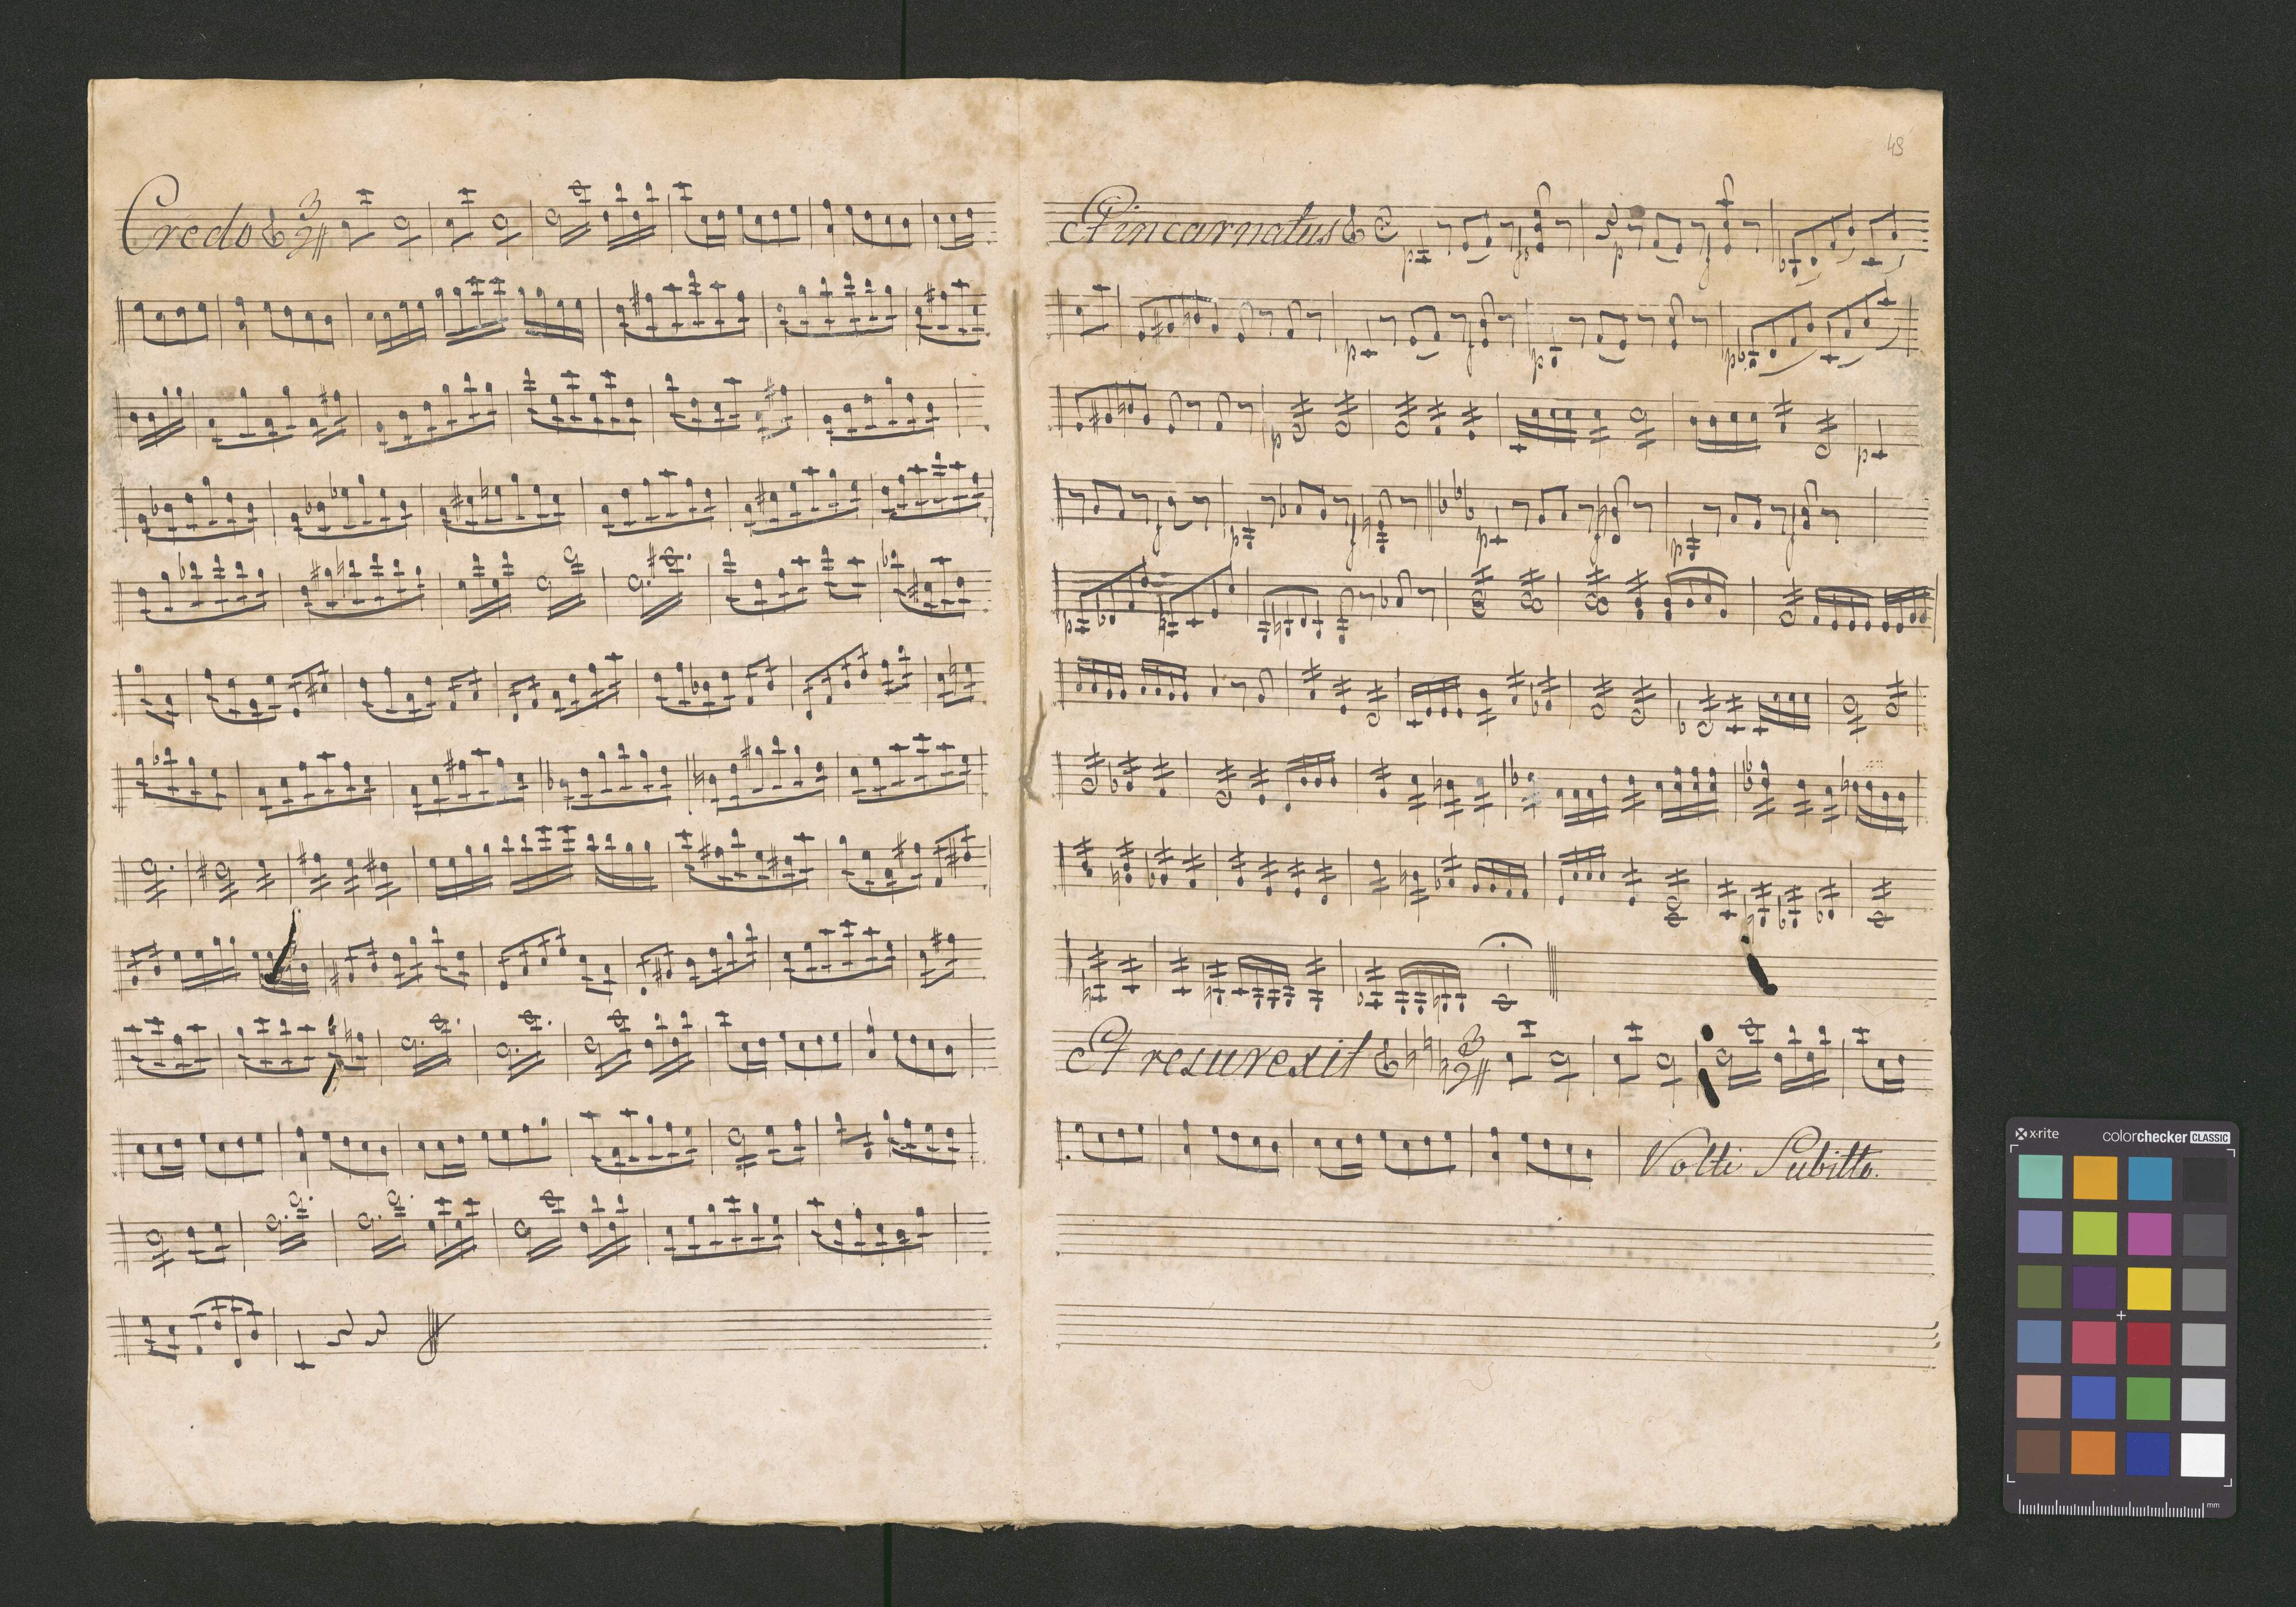 Credo
48
Et incarnatus
Et resurexit
Volti Subitto.
x-rite
colorchecker CLASSIC
mm